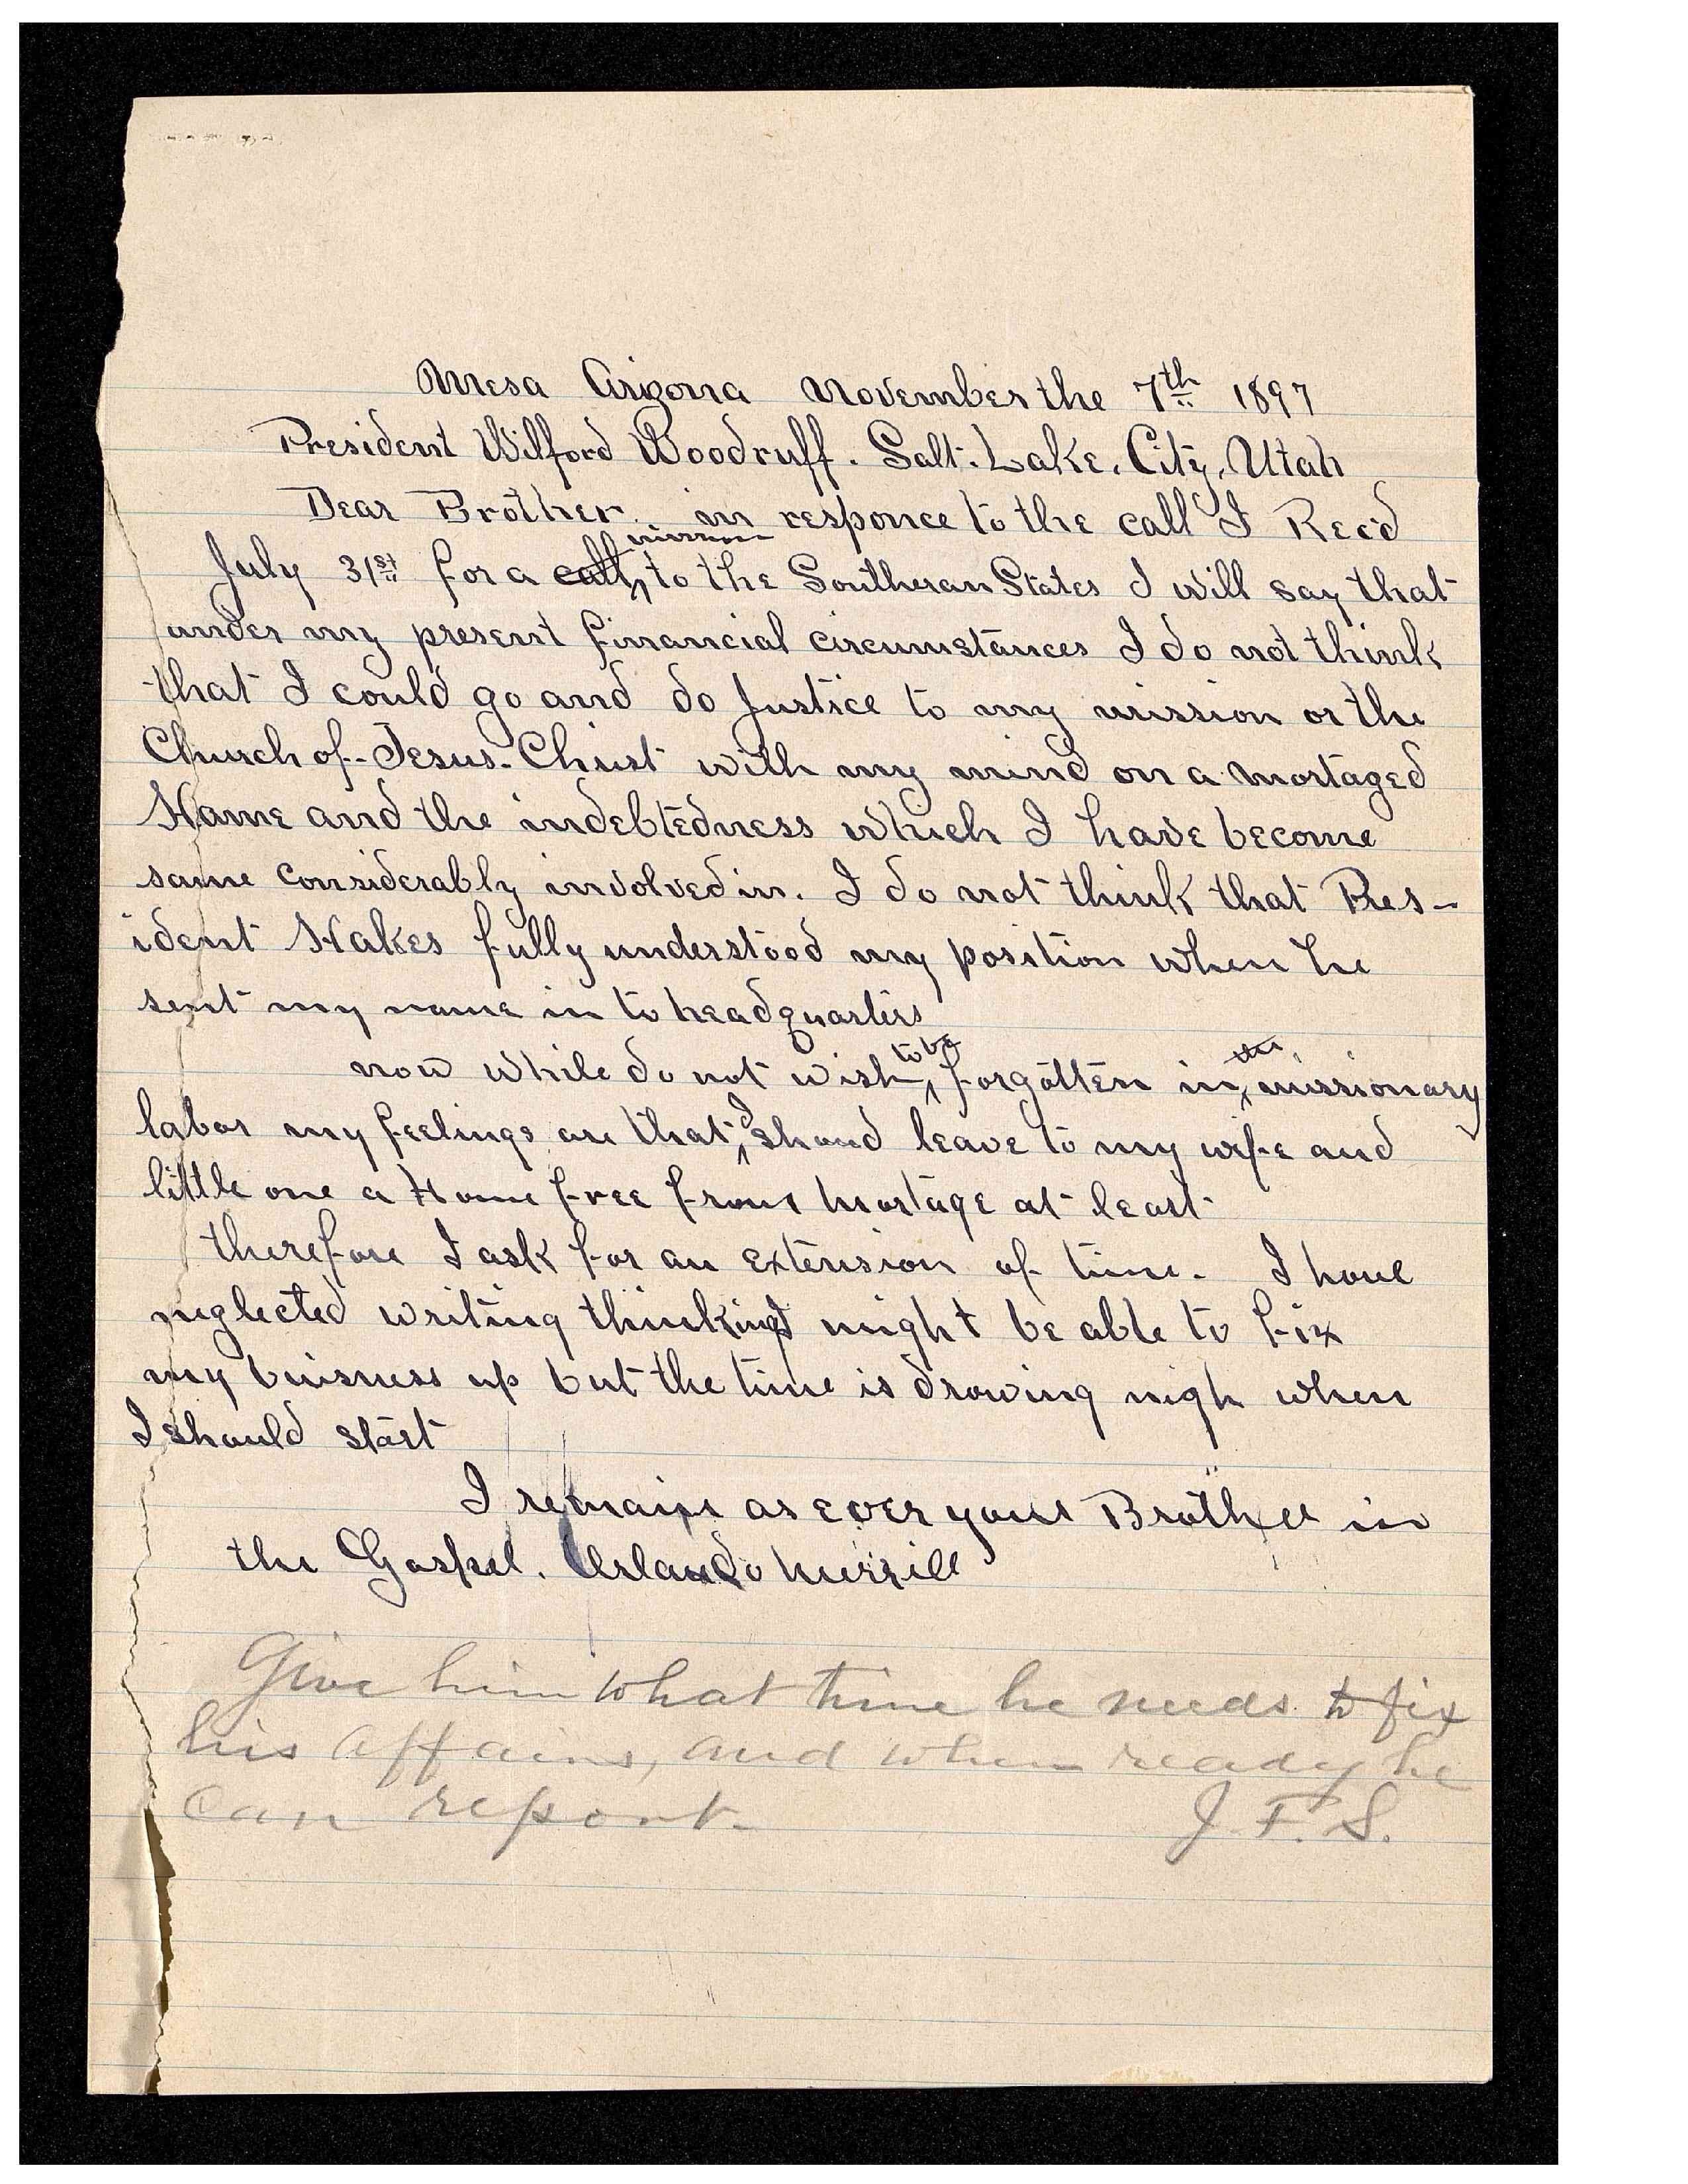 Mesa Arizona November the 7th 1897
President Wilford Woodruff. Salt. Lake. City, Utah
Dear Brother. in responce to the call I Rec'd
July 31st for a call mission to the Southeran States I will say that
under my present financial circumstances I do not think
that I could go and do Justice to my mission or the
Church of-Jesus-Christ with my mind on a mortaged
Home and the indebtedness which I have become
some considerably involved in. I do not think that Pres-
ident Hakes fully understood my position when he
sent my name in to headquarters
now while do not wish to be forgotten in the missionary
labor my feelings are that I shoud leave to my wife and
little one a Home free from Mortage at least
therefore I ask for an extension of time. I have
neglected writing thinking I might be able to fix
my buisness up but the time is drowing nigh when
I should start
I remain as ever your Brother in
the Gospel. Orlando Merrill
Give him what time he needs to fix
his affairs, and when ready he
can report. J. F. S.